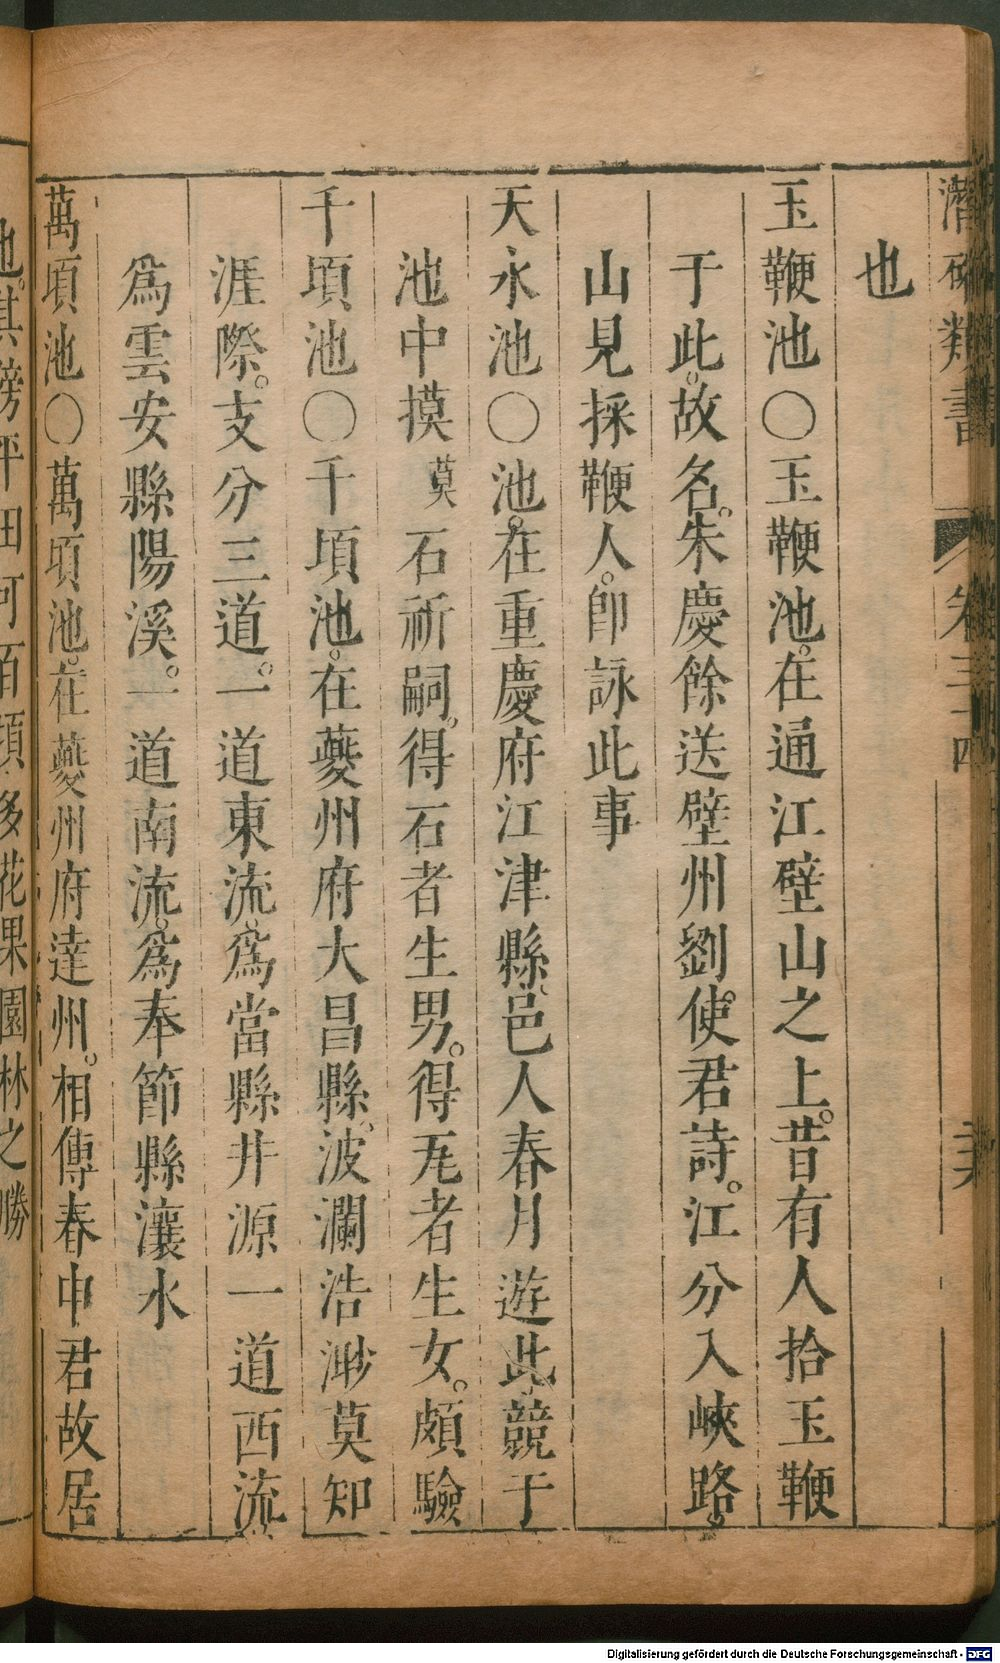 潛確類書 卷三十四
也
玉鞭池○玉鞭池。在通江壁山之上。昔有人拾玉鞭
于此。故名。朱慶餘送壁州劉使君詩。江分入峽路。
山見採鞭人。卽詠此事
天永池○池。在重慶府江津縣、邑人春月遊此、競于
池中摸莫石祈嗣。得石者生男。得瓦者生女。頗驗
千頃池○千頃池。在夔州府大昌縣。波瀾浩渺莫知
涯際。支分三道。一道東流。爲當縣井源一道西流
爲雲安縣陽溪。一道南流。爲奉節縣瀼水
萬頃池○萬頃池。在夔州府達州。相傳春申君故居
也。其傍平田可百頃多花果園林之勝
Digitalisierung gefördert durch die Deutsche Forschungsgemeinschaft - DFG